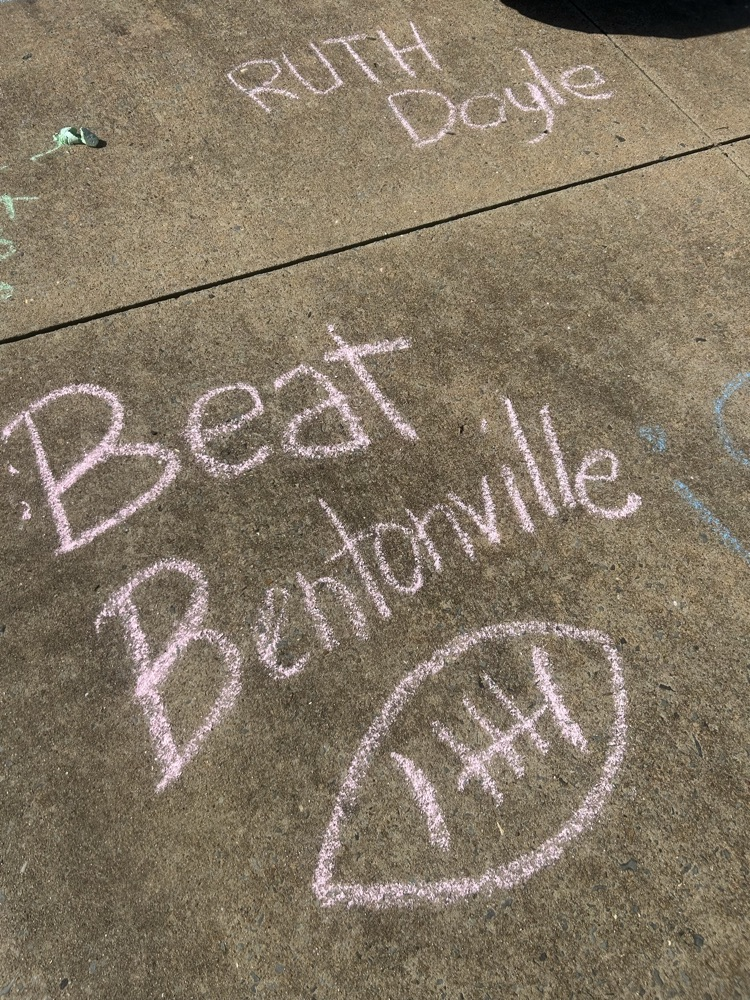 RUTH
Doyle
Beat
Bentonville